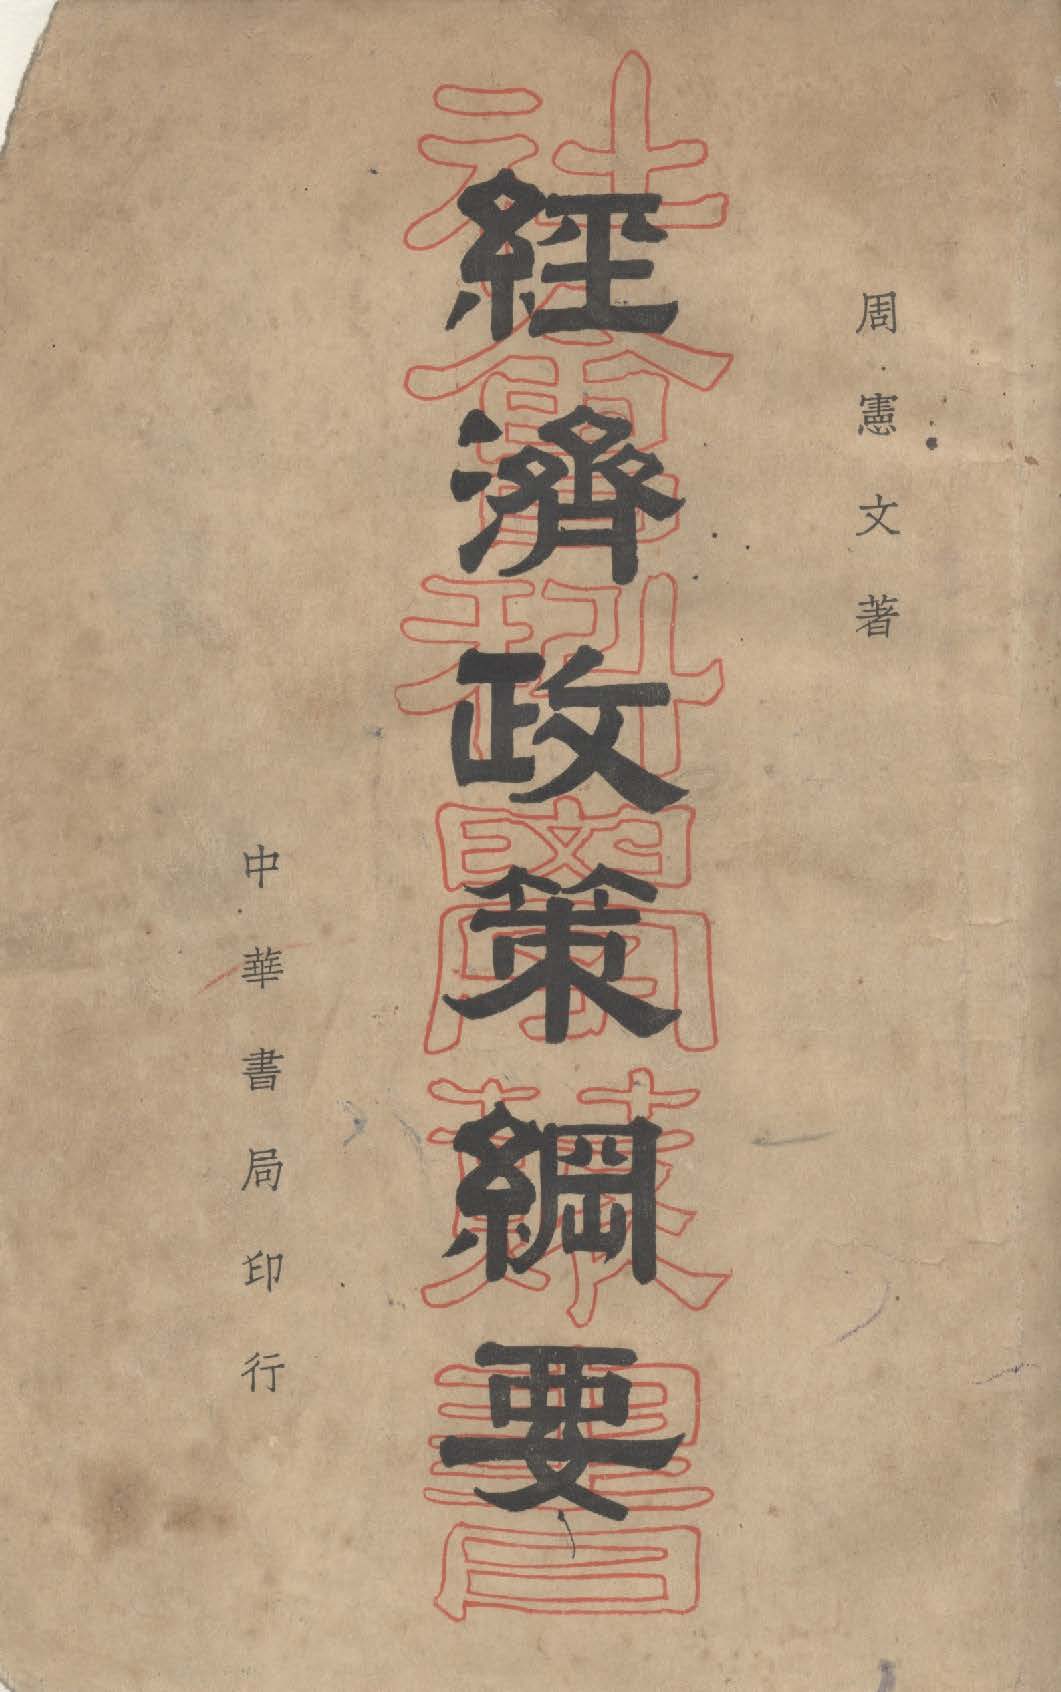 周憲文著
經濟政策綱要
社會科學叢書
中華書局印行